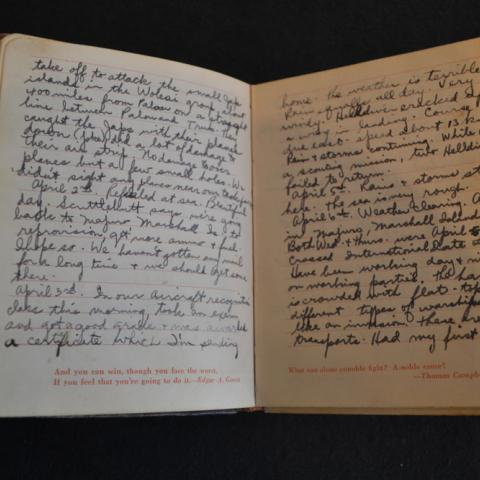 take off to attack the small Jap
islands in the Woleai group about
400 miles from Palau on a straight
line between Palau and Truk. We
caught the Japs with their planes
down (fools) did a lot of damage to
their air strip. No damage to our
planes but a few small holes. We
didn't sight any planes near our
April 2nd. Refueled at sea. Beautiful
day. Scuttlebutt says we're going
back to Majuro, Marshall Is. to
reprovision, get more ammo & fuel.
I hope so. We haven't gotten any mail
for a long time & we should get some
there.
April 3rd. In our Aircraft recognition
class this morning, took an exam
and got a good grade & was awarded
a certificate which I'm sending
And you can win, though you face the worst,
If you feel that you're going to do it.—Edgar A. Guest
home. the weather is terrible
Rain squalls all day. Very
windy. Helldiver cracked up
a wing in landing. Course
due east - speed about 13 k
Rain & storms continuing. While
a scouting mission, two Helldiv
failed to return.
April 5th. Rains & storms st
here. the sea is very rough.
April 6th. Weather clearing. A
in Majuro, Marshall Island
Both Wed. & Thurs. were April 5
Crossed International Date
Have been working day & ni
on working parties. the har
is crowded with flat-top
different types of warship
like an invasion? there are
transports. Had my first
What can alone ennoble fight? A noble cause!
—Thomas Campb